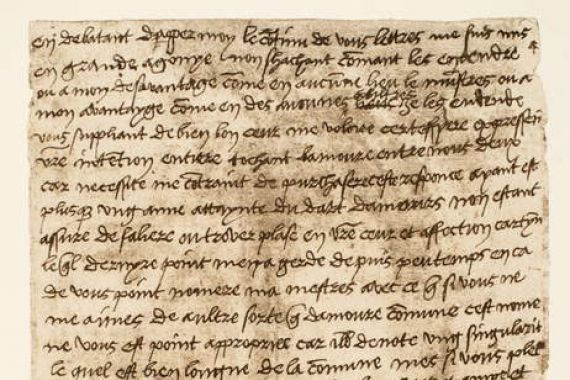 En debatant d'apper moy le contenu de vous lettres me suis mis
en grande agonye non sachant comant les entendre
ou a mon desavantage come en aucune lieu le mustres ou a
mon avantayge come en des aucunes aultres le les entende
vous suppliant de bien bon ceur me voloire certeffyere expressem
vre intention entiere tochant l'amoure entre nous deux
car necessite me contraint de purchaser ceste responce ayant este
plusq ung anne attaynte du dart d'amours non estant
assure de faliere ou trover plase en vre ceur et affection cartyn
le ql dernyre point m'en a gerde de puis peu temps en ca
de vous point nomere ma mestres avec ce q si vous ne
me aimes de aultre sorte q d'amoure comune cest nome
ne vous est point approprice car ill denote ung singularit
le quel est bien longne de la comune mes si vous ples